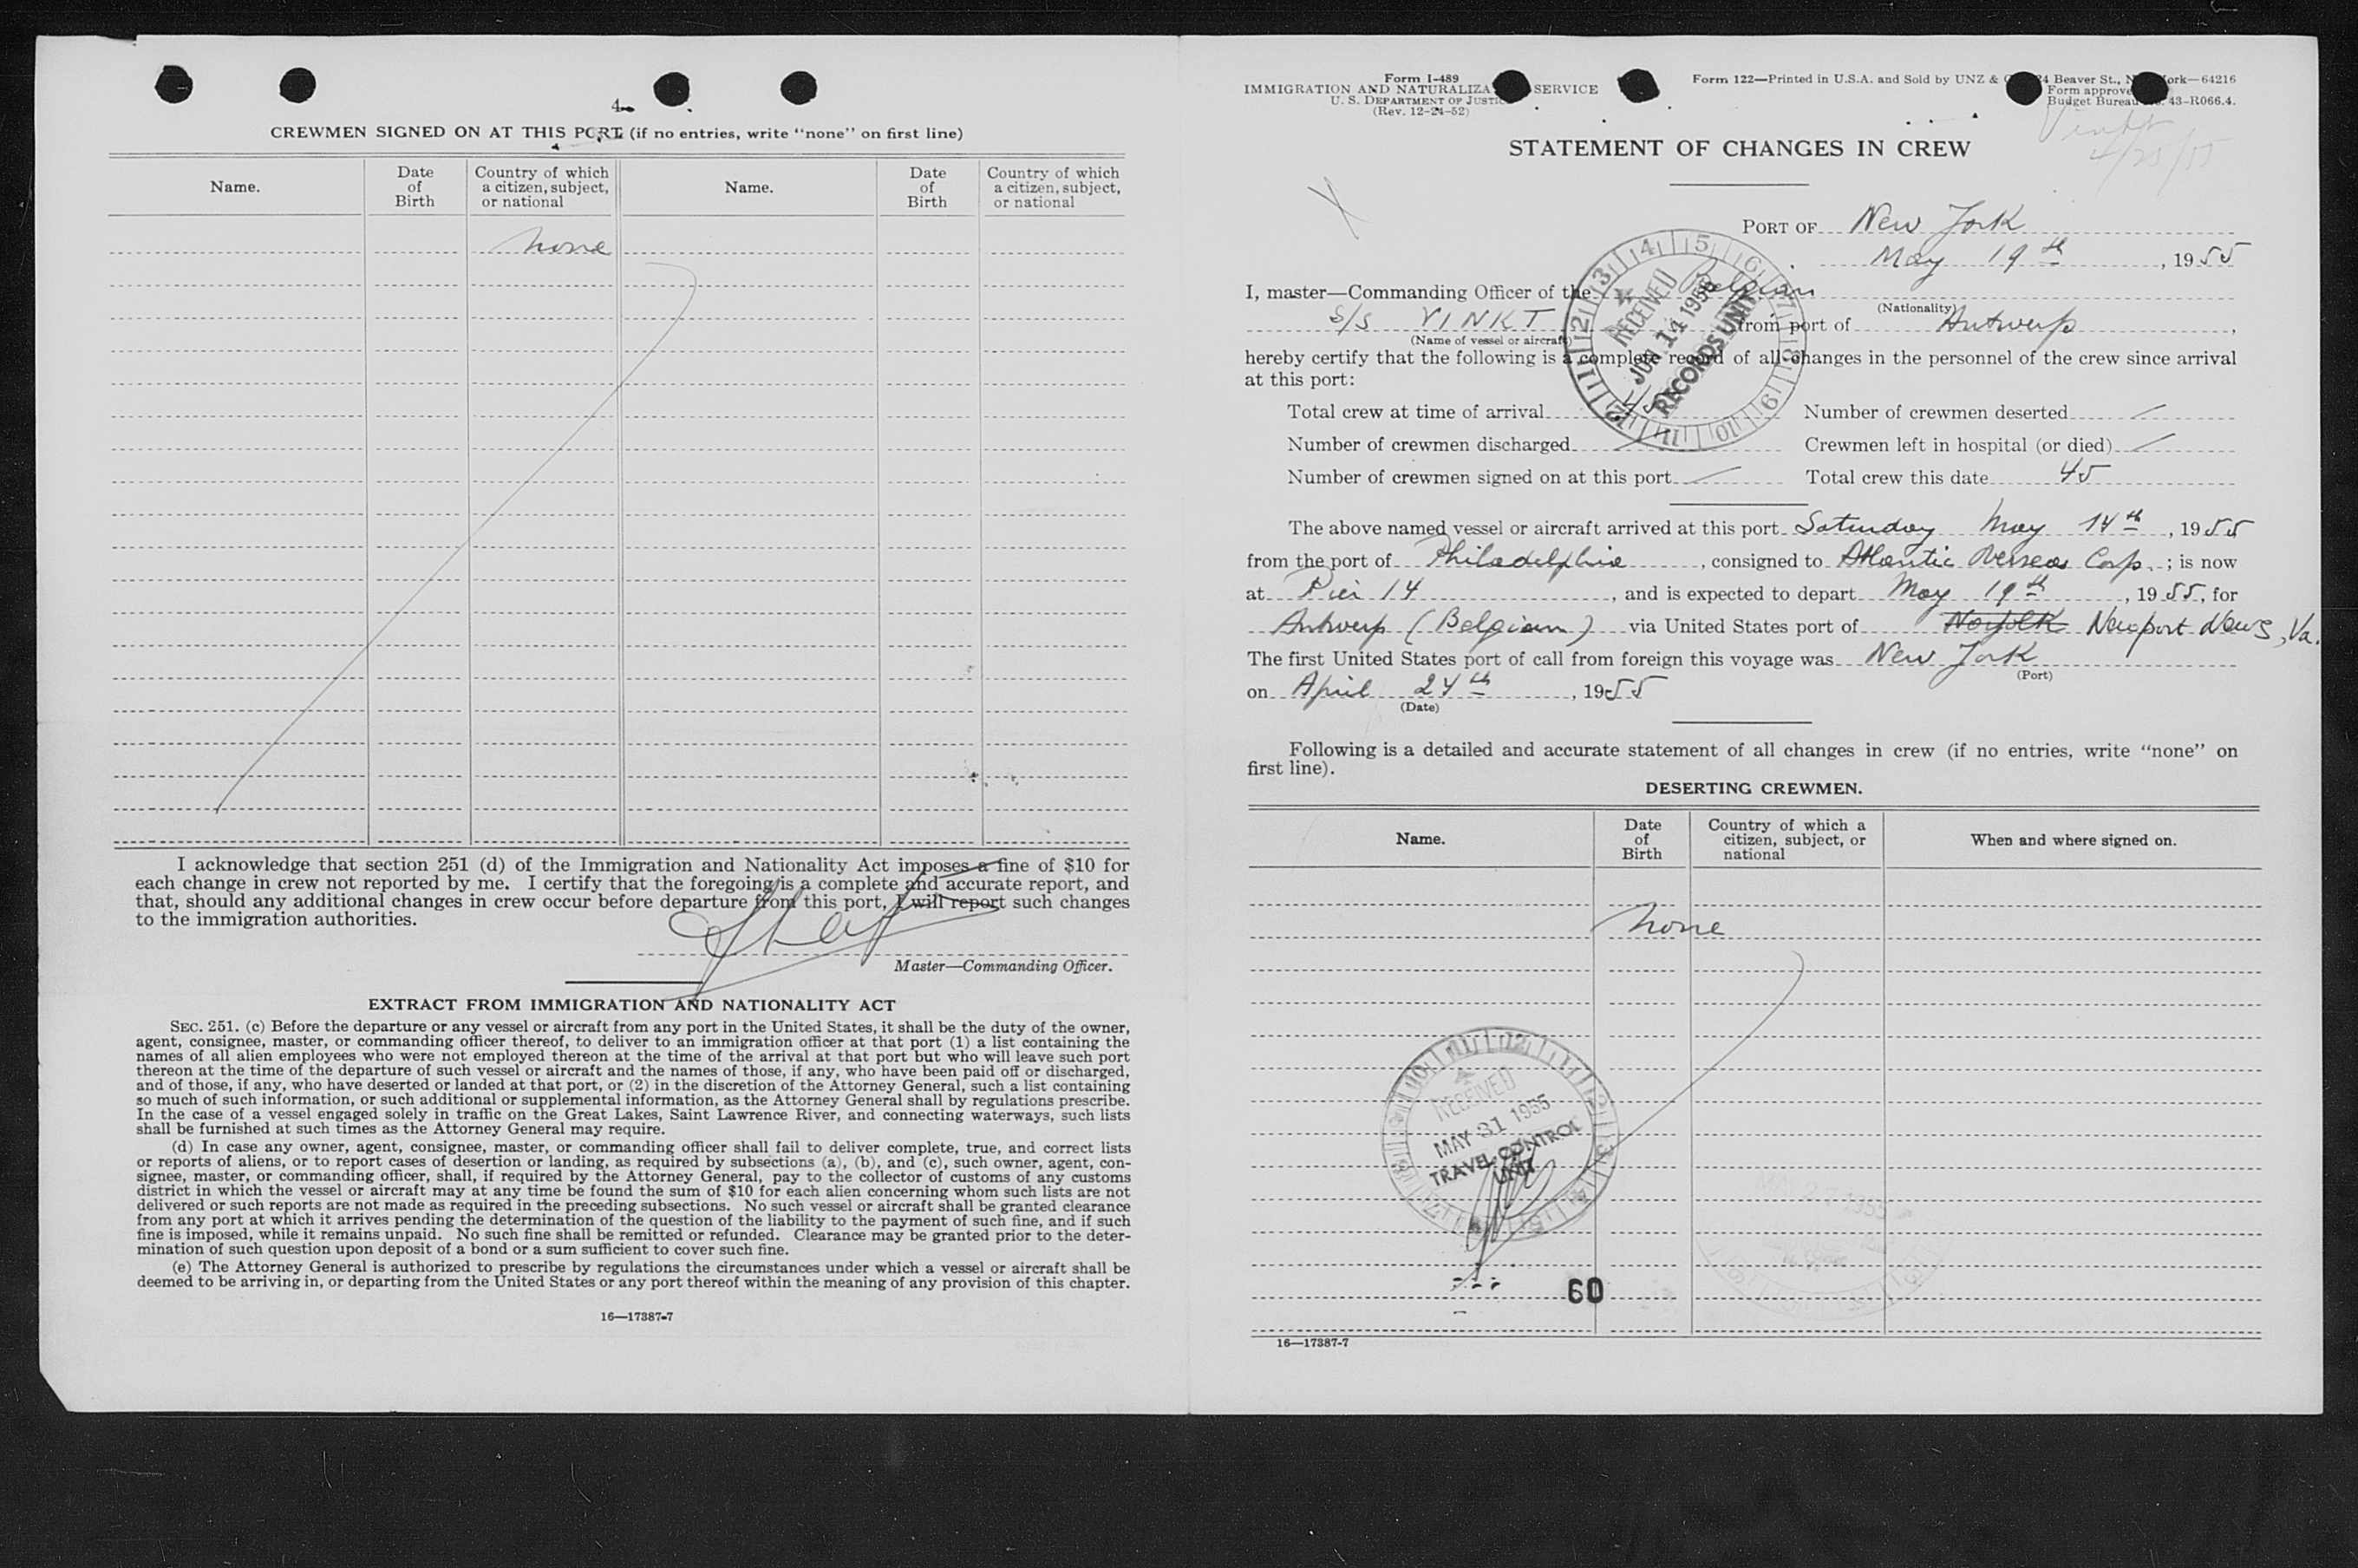 4
CREWMEN SIGNED ON AT THIS PORT (if no entries, write “none” on first line)
Name. Date of Birth Country of which a citizen, subject, or national Name. Date of Birth Country of which a citizen, subject, or national
none
I acknowledge that section 251 (d) of the Immigration and Nationality Act imposes a fine of $10 for
each change in crew not reported by me. I certify that the foregoing is a complete and accurate report, and
that, should any additional changes in crew occur before departure from this port, I will report such changes
to the immigration authorities.
Master—Commanding Officer.
EXTRACT FROM IMMIGRATION AND NATIONALITY ACT
SEC. 251. (c) Before the departure or any vessel or aircraft from any port in the United States, it shall be the duty of the owner,
agent, consignee, master, or commanding officer thereof, to deliver to an immigration officer at that port (1) a list containing the
names of all alien employees who were not employed thereon at the time of the arrival at that port but who will leave such port
thereon at the time of the departure of such vessel or aircraft and the names of those, if any, who have been paid off or discharged,
and of those, if any, who have deserted or landed at that port, or (2) in the discretion of the Attorney General, such a list containing
so much of such information, or such additional or supplemental information, as the Attorney General shall by regulations prescribe.
In the case of a vessel engaged solely in traffic on the Great Lakes, Saint Lawrence River, and connecting waterways, such lists
shall be furnished at such times as the Attorney General may require.
(d) In case any owner, agent, consignee, master, or commanding officer shall fail to deliver complete, true, and correct lists
or reports of aliens, or to report cases of desertion or landing, as required by subsections (a), (b), and (c), such owner, agent, con-
signee, master, or commanding officer, shall, if required by the Attorney General, pay to the collector of customs of any customs
district in which the vessel or aircraft may at any time be found the sum of $10 for each alien concerning whom such lists are not
delivered or such reports are not made as required in the preceding subsections. No such vessel or aircraft shall be granted clearance
from any port at which it arrives pending the determination of the question of the liability to the payment of such fine, and if such
fine is imposed, while it remains unpaid. No such fine shall be remitted or refunded. Clearance may be granted prior to the deter-
mination of such question upon deposit of a bond or a sum sufficient to cover such fine.
(e) The Attorney General is authorized to prescribe by regulations the circumstances under which a vessel or aircraft shall be
deemed to be arriving in, or departing from the United States or any port thereof within the meaning of any provision of this chapter.
16—17387-7
Form I-489
IMMIGRATION AND NATURALIZA SERVICE
U. S. DEPARTMENT OF JUSTIC
(Rev. 12-24-52)
Form 122—Printed in U.S.A. and Sold by UNZ & 4 Beaver St., N ork—64216
Form approve
Budget Bureau 43-R066.4.
Vinkt
4/25/55
STATEMENT OF CHANGES IN CREW
PORT OF New York
May 19th, 1955
I, master—Commanding Officer of the Belgian
(Nationality)
S/S VINKT from port of Antwerp,
(Name of vessel or aircraft)
hereby certify that the following is a complete record of all changes in the personnel of the crew since arrival
at this port:
RECEIVED
JUN 14 1955
RECORDS UNIT
Total crew at time of arrival 45 Number of crewmen deserted —
Number of crewmen discharged — Crewmen left in hospital (or died) —
Number of crewmen signed on at this port — Total crew this date 45
The above named vessel or aircraft arrived at this port Saturday May 14th, 1955
from the port of Philadelphia, consigned to Atlantic Overseas Corp.; is now
at Pier 14, and is expected to depart May 19th, 1955, for
Antwerp (Belgium) via United States port of Norfolk Newport News, Va.
The first United States port of call from foreign this voyage was New York
(Port)
on April 24th, 1955
(Date)
Following is a detailed and accurate statement of all changes in crew (if no entries, write “none” on
first line).
DESERTING CREWMEN.
Name. Date of Birth Country of which a citizen, subject, or national When and where signed on.
none
RECEIVED
MAY 31 1955
TRAVEL CONTROL
UNIT
60
16—17387-7